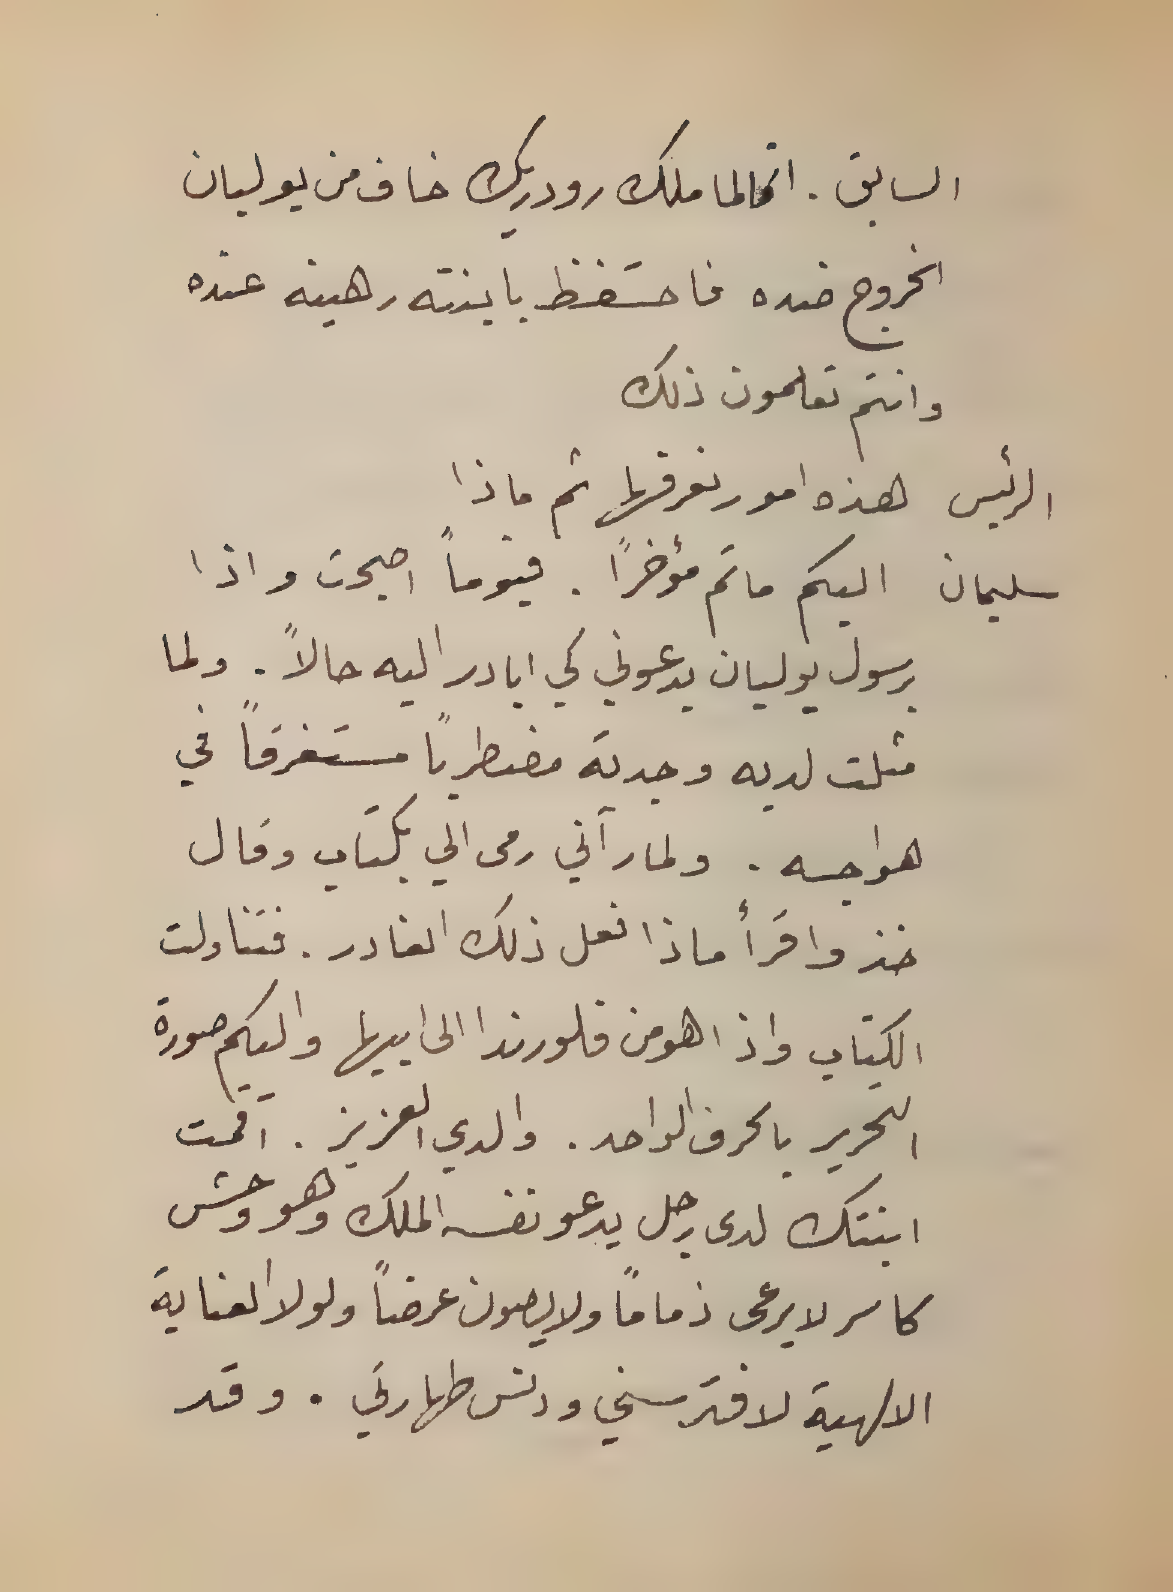 السابق . انما لما ملك رودريك خاف من يوليان
الخروج ضده فاحتفظ بابنته رهينة عنده
وانتم تعلمون ذلك
الرئيس هذه امور نعرفها ثم ماذا
سليمان اليكم ماتم مؤخرًا . فيوماً اصبحت واذا
برسول يوليان يدعوني كي ابادر اليه حالاً . ولما
مثلت لديه وجدته مضطرباً مستغرقاً في
هواجسه . ولما رآني رمى الي بكتاب وقال
خذ واقرأ ماذا فعل ذلك الغادر . فتناولت
الكتاب واذا هو من فلورندا الى ابيها واليكم صورة
التحرير بالحرف الواحد . والدي العزيز . اقمت
ابنتك لدى رجل يدعو نفسه الملك وهو وحش
كاسر لا يرعى ذماماً ولا يصون عرضاً ولولا العناية
الالهية لافترسني ودنس طهارتي . وقد